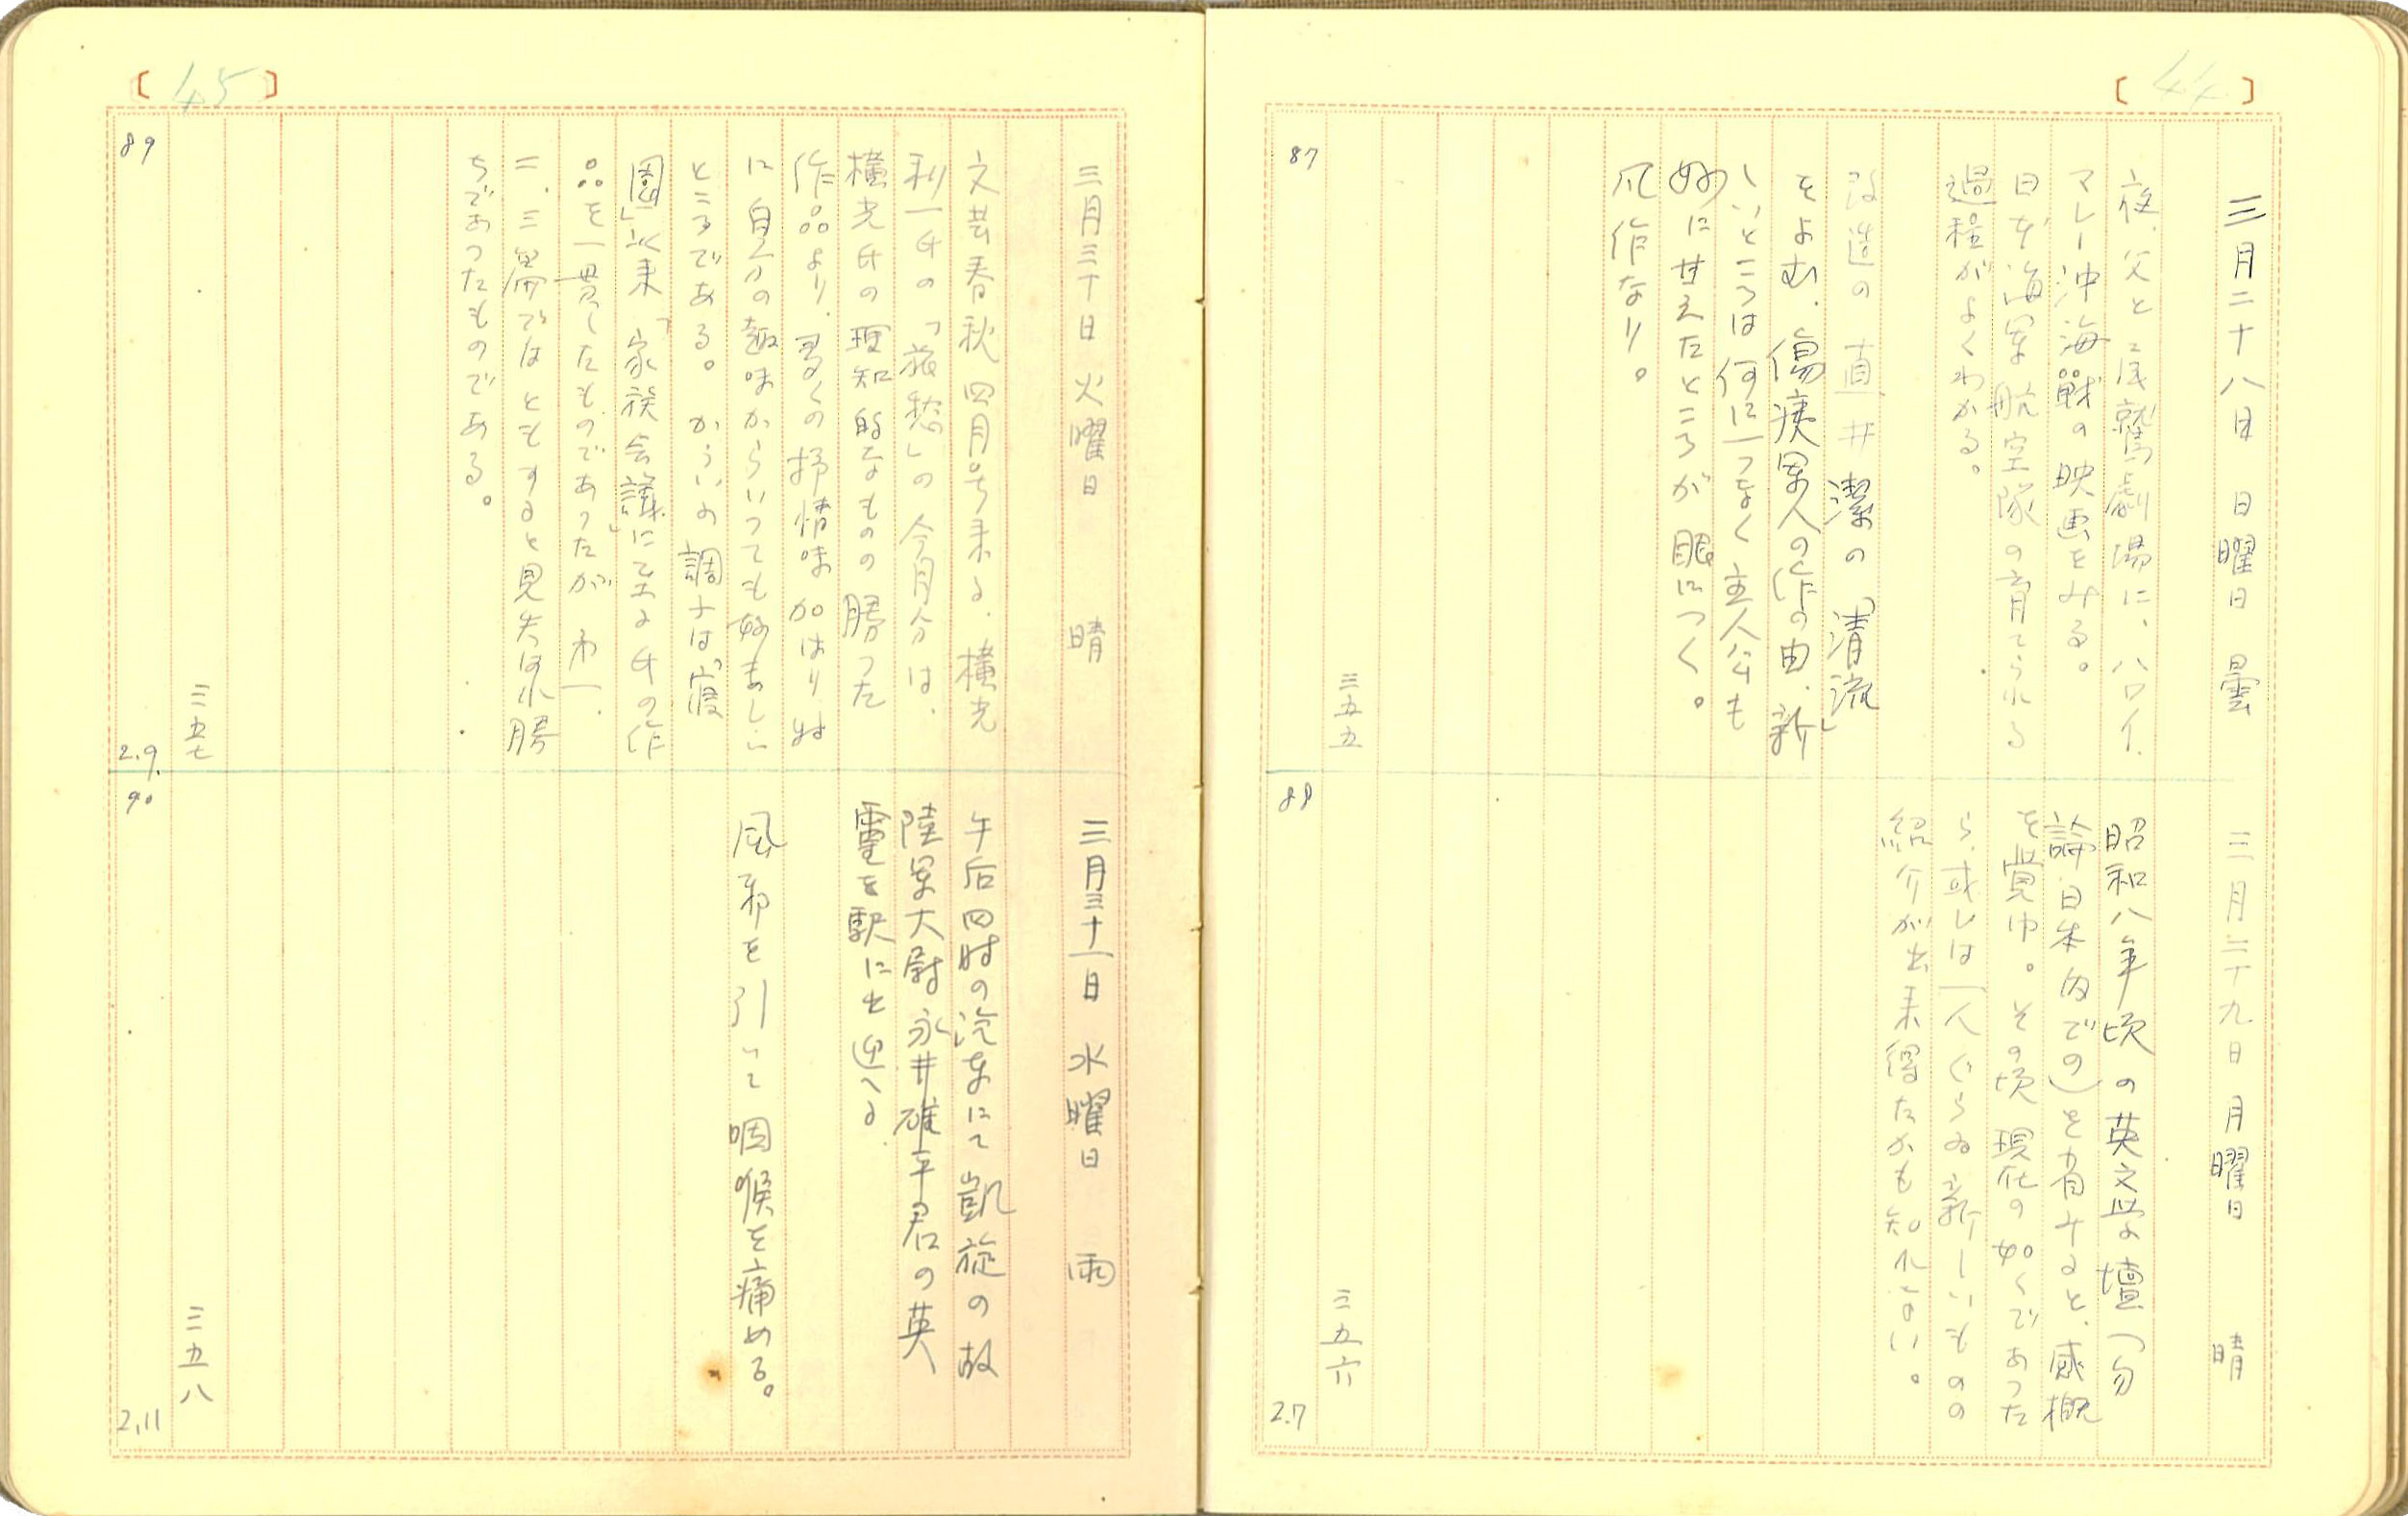 〔44〕
三月二十八日 日曜日 曇
夜、父と尾鷲劇場に、ハワイ、
マレー沖海戦の映画をみる。
日本海軍航空隊の育てられる
過程がよくわかる。
改造の直井潔の「清流」
をよむ、傷痍軍人の作の由、新
しいところは何に一つなく主人公も
妙に甘えたところが眼につく。
凡作なり。
三五五
87
三月二十九日 月曜日 晴
昭和八年頃の英文学壇(勿
論日本内での)を省みると、感慨
を覚ゆ。その頃現在の如くであった
ら、或ひは一人ぐらゐ新しいものの
紹介が出来得たかも知れない。
三五六
88
2.7
〔45〕
三月三十日 火曜日 晴
文芸春秋四月号来る、横光
利一氏の「旅愁」の今月分は、
横光氏の理知的なものの勝った
作品より、多くの抒情味加はり、
に自分の趣味からいっても好ましい
ところである。かういふ調子は「寝
園」以来「家族会議」に至る氏の作
品を一貫したものであったが 第一、
二、三篇ではともすると見失はれ勝
ちであったものである。
三五七
89
2.9.
三月三十一日 水曜日 雨
午后四時の汽車にて凱旋の故
陸軍大尉永井確平君の英
霊を駅に出迎へる
風邪を引いて咽喉を痛める。
三五八
90
2.11